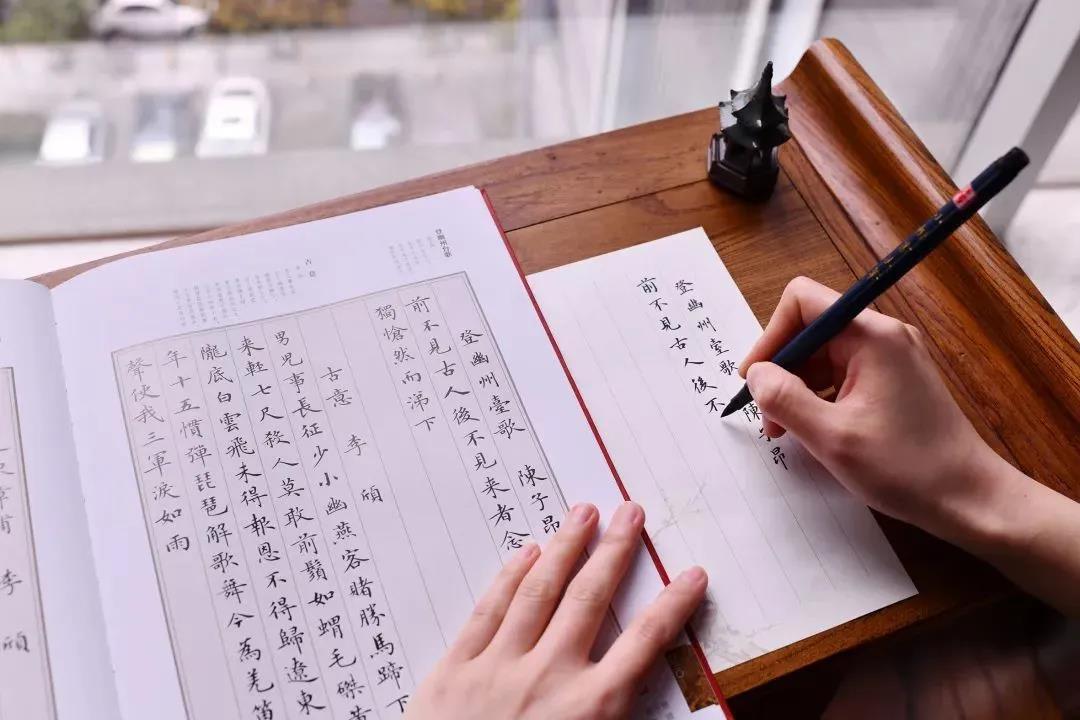 登幽州臺歌 陳子昂
前不見古人後不
登幽州台歌
古意
登幽州臺歌 陳子昂
前不見古人後不見来者念
獨愴然而涕下
古意 李頎
男児事長征少小幽燕客賭勝馬蹄下
来軽七尺殺人莫敢前鬚如蝟毛磔黄
隴底白雲飛未得報恩不得歸遼東
年十五慣彈琵琶解歌舞今為羌笛
聲使我三軍淚如雨
李頎